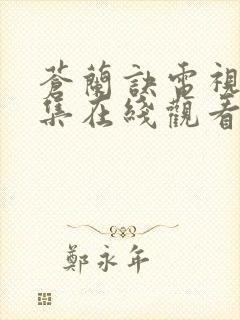 蒼蘭訣電視
集在綫觀看
鄭永年